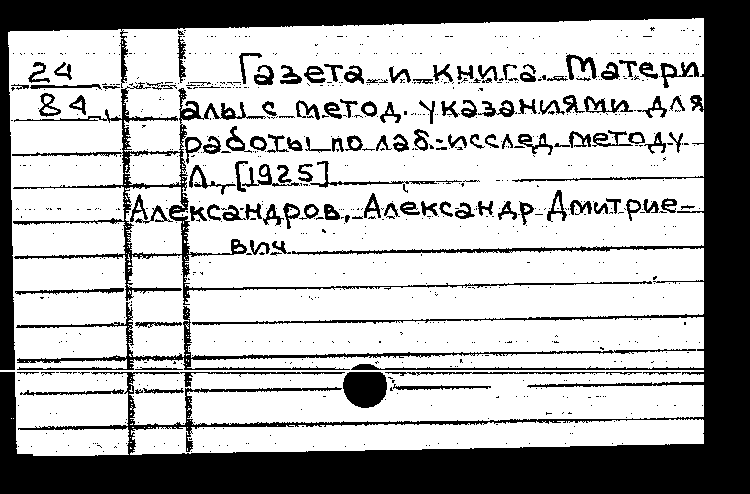 24
84
Газета и книга. Матери
алы с метод. указаниями для
работы по лаб.-исслед. методу
Л., [1925]
Александров, Александр Дмитрие-
вич